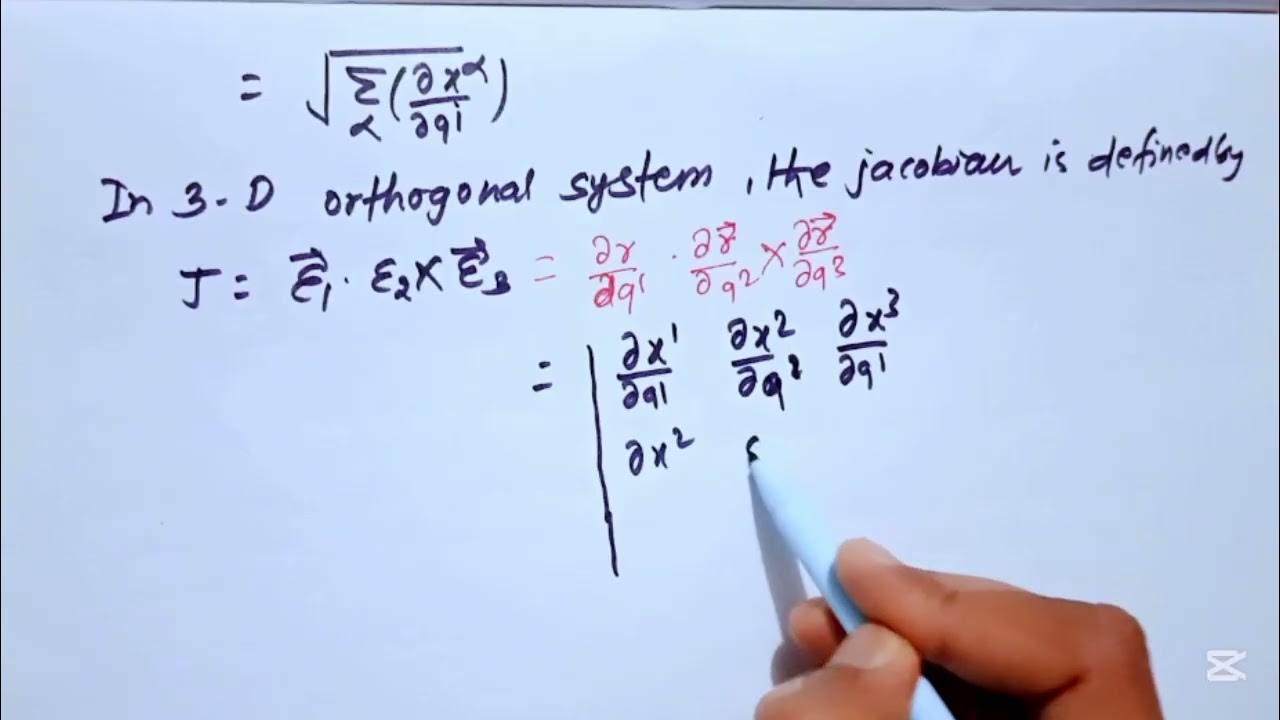 = √(Σ_α (∂x^α/∂q^1))
In 3-D orthogonal system, the jacobian is defined by
J = ε⃗_1 · ε_2 × ε⃗_3 = ∂r/∂q^1 · ∂r⃗/∂q^2 × ∂r⃗/∂q^3
= | ∂x^1/∂q^1 ∂x^2/∂q^2 ∂x^3/∂q^1
∂x^2